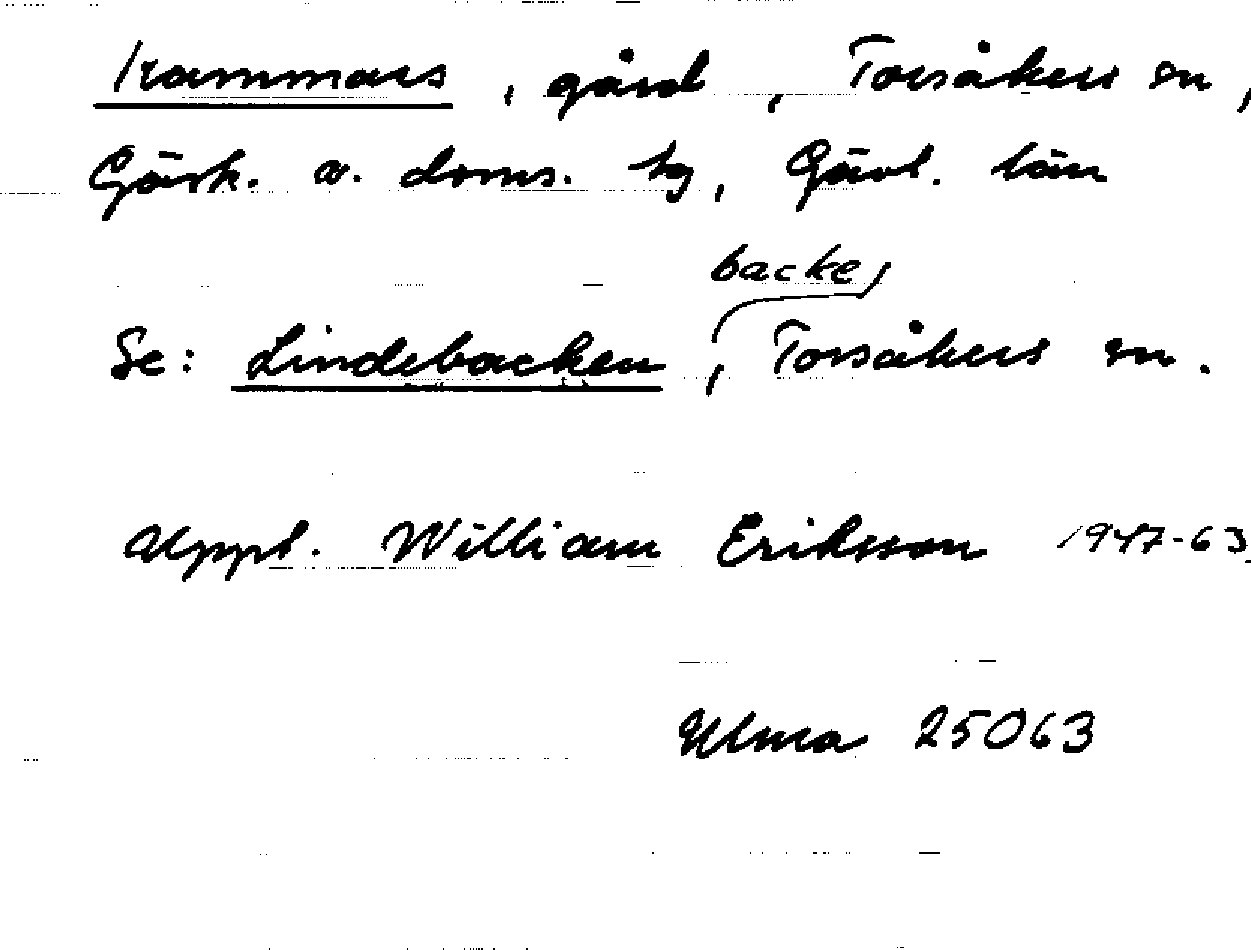 Kammars, gård, Torsåkers sn,
Gästr. ö. doms. tg, Gävl. län
backe,
Se: Lindebacken, Torsåkers sn.
Uppt. William Eriksson 1947-63
Ulma 25063